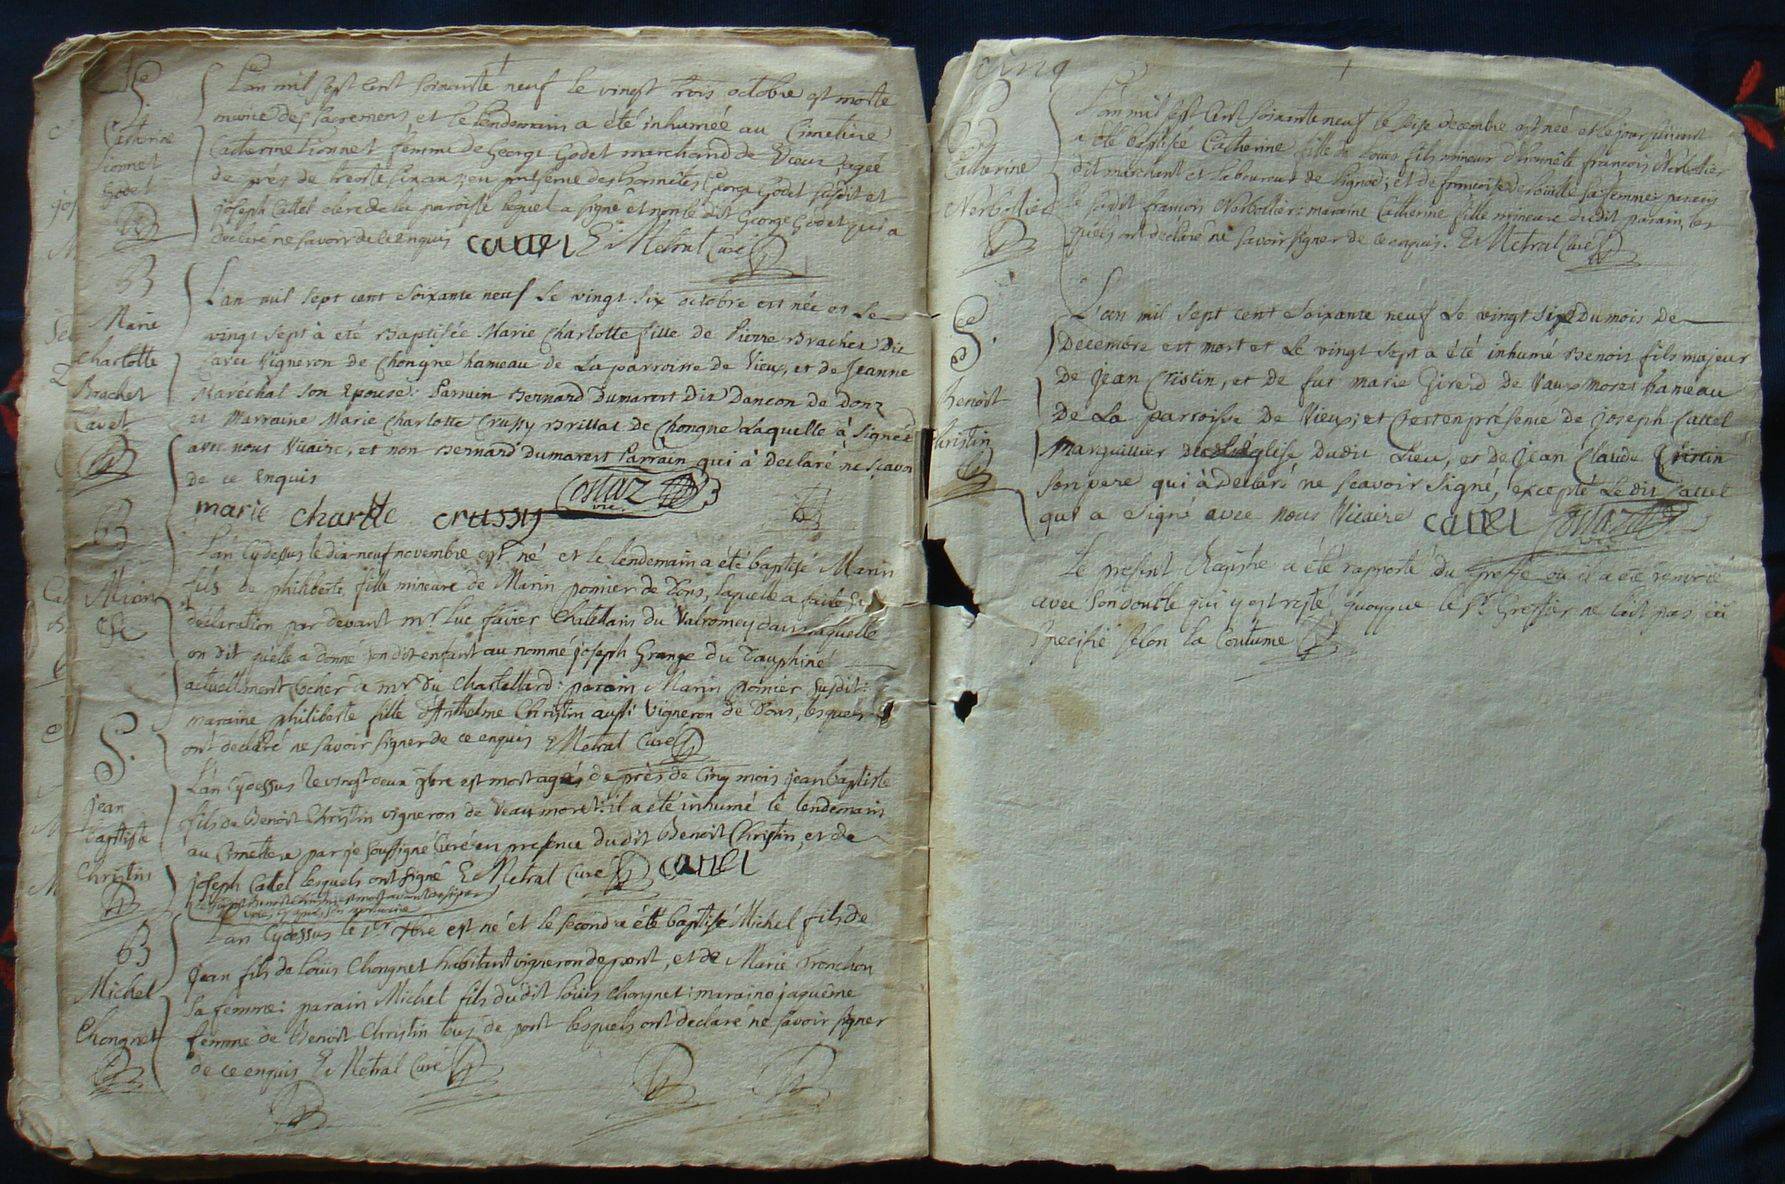 S.
Catherine
Tionnet
Godet
L'an mil sept cent soixante neuf le vingt trois octobre est morte
munie des sacremens, et le lendemain a été inhumée au Cimetiere
Catherine Tionnet femme de George Godet marchand de Vieux, agée
de pres de trente six ans; en présence des honnêtes George Godet susdit et
joseph Cattel clerc de la paroisse lequel a signé et non le dit George Godet qui a
declaré ne savoir de ce enquis cattel E: Metral Curé
B
Marie
Charlotte
Brachet
Cavet
L'an mil sept cent soixante neuf Le vingt six octobre est née et Le
vingt sept à eté Baptisée Marie Charlotte fille de Pierre Brachet Dit
Cavet Vigneron de Chongne hameau de La parroisse de Vieux, et de Jeanne
Maréchal son Epouse: Parrain Bernard Dumarest Dit Dancon de Donz
et Marraine Marie Charlotte Crussy Brillat de Chongne Laquelle à signée
avec nous Vicaire, et non Bernard Dumarest Parrain qui à Declaré ne sçavoir
de ce Enquis
marie charlotte crussy Costaz vic.
B
Marin
L'an Cydessus le dix neuf novembre est né et le lendemain a été baptisé Marin
fils de philiberte, fille mineure de Marin ponier de Dons, laquelle a faite sa
déclaration par devant mr. Luc favier Chatelain du Valromey dans laquelle
on dit qu'elle a donné son dit enfant au nommé joseph Grange du Dauphiné
actuellement Cocher de mr. du Chastellard: parain Marin ponier susdit:
maraine philiberte fille d'Anthelme Christin aussi Vigneron de Dons, lesquels
ont declaré ne savoir signer de ce enquis E: Metral Curé
S.
jean
baptiste
Christin
L'an Cydessus le vingt deux 9bre est mort agés de près de Cinq mois jean baptiste
fils de Benoit Christin vigneron de Veaux moret: il a été inhumé le lendemain
au Cimettere par je soussigné Curé en presence du dit Benoit Christin, et de
joseph Cattel lesquels ont signé E: Metral Curé cattel
B
Michel
Chongnet
L'an Cydessus le 1er Xbre est né et le second a été baptisé Michel fils de
jean fils de Louis Chongnet habitant vigneron de pont, et de Marie Tronchon
sa femme: parain Michel fils du dit Louis Chongnet: maraine jaquême
femme de Benoit Christin tous de pont lesquels ont declaré ne savoir signer
de ce enquis E: Metral Curé
cinq
B
Catherine
Nerbollier
L'an mil sept cent soixante neuf le seize decembre est née et le jour suivant
a été baptisée Catherine fille de Louis fils mineur d'honnête françois Nerbollier
dit marchant et Laboureur de Lignod; et de françoise Derbaille sa femme: parain
le susdit françois Nerbollier: maraine Catherine fille mineure du dit parain, les
quels ont declaré ne savoir signer de ce enquis. E: Metral Curé
S.
Benoit
Christin
L'an mil sept cent soixante neuf Le vingt six Du mois de
Decembre est mort et Le vingt sept a été inhumé Benoit fils majeur
De Jean Cristin, et de fut marie Girerd de Vaux moret hameau
De La parroisse De Vieux; et C'est en présence de Joseph Cattel
Marguillier de L'eglise Dudit Lieu, et de Jean Claude Cristin
son pere qui à declaré ne sçavoir signé, excepté Le dit Cattel
qui a signé avec nous Vicaire cattel Costaz vic.
Le present Registre a été rapporté du Greffe où il a été remis
avec son double qui y est resté, quoyque le Sr. Greffier ne l'ait pas
specifié selon la Coutume